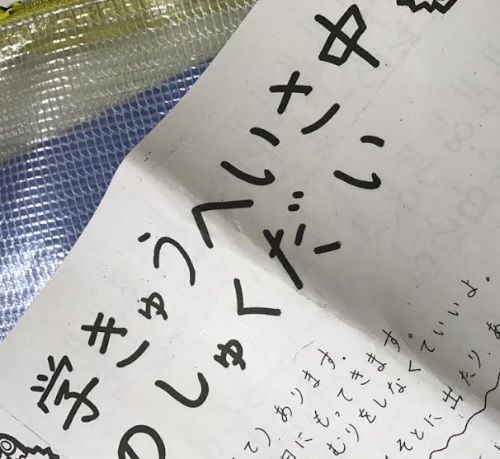 学きゅうへいさ中
のしゅくだい
て) あります。
日にもってきます。
むりをしなくていいよ。
そとに出たり、あ